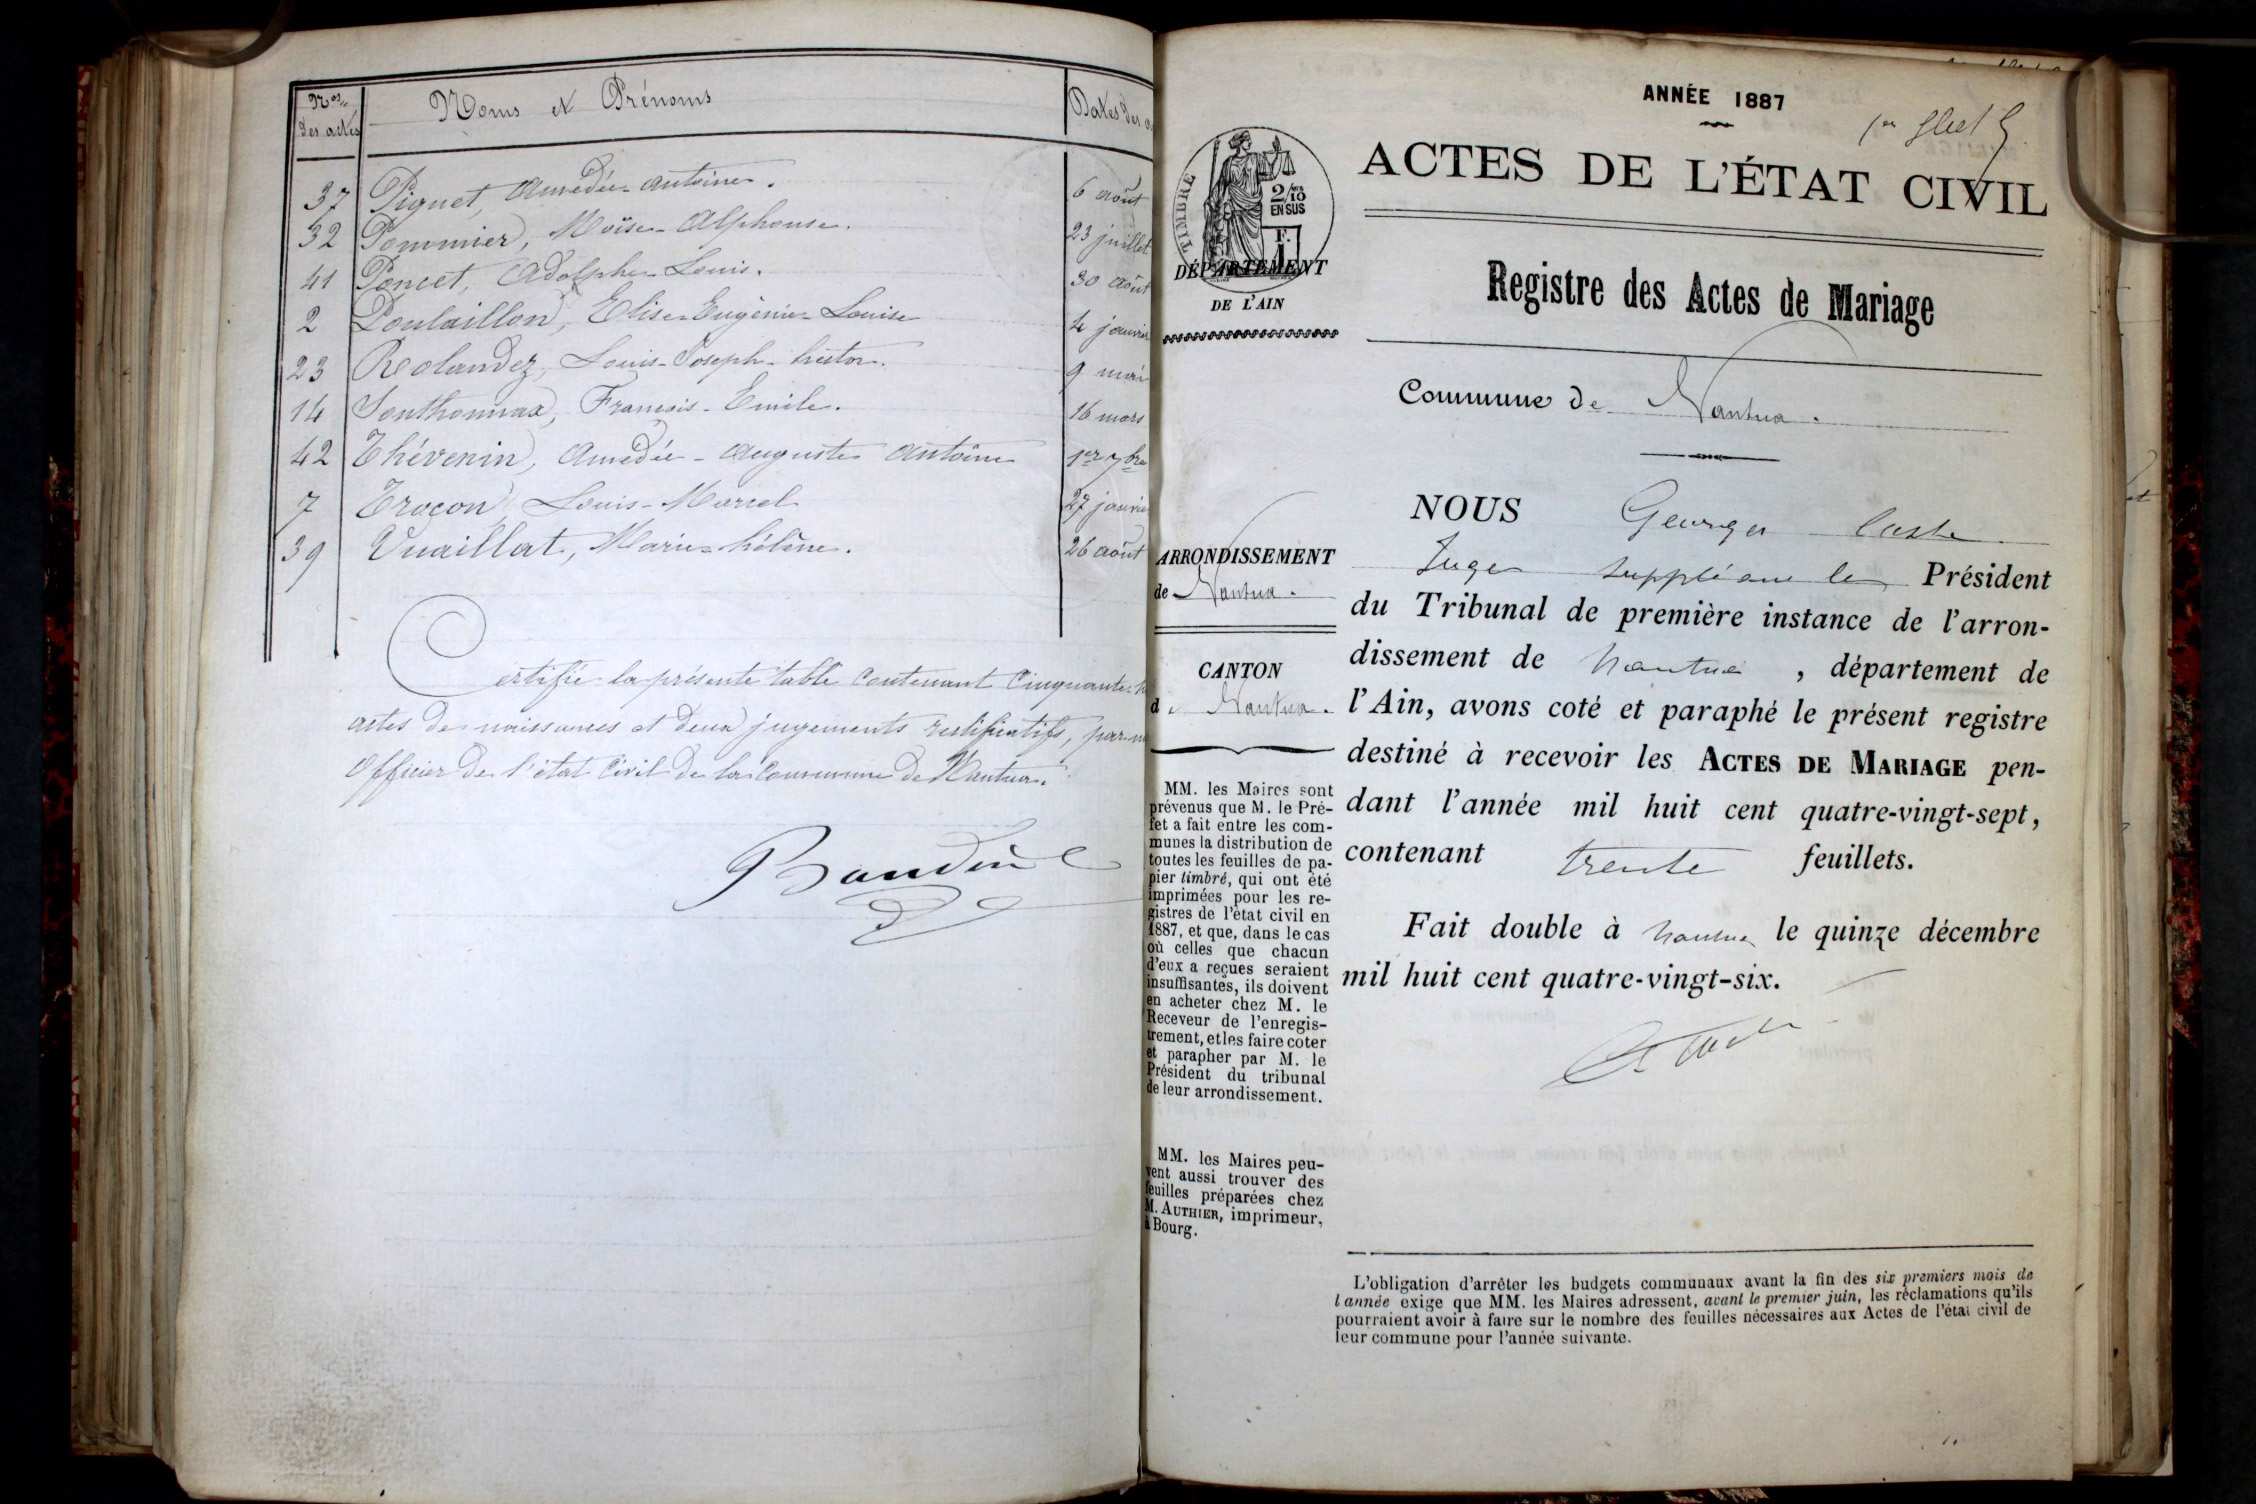 Nos des actes Noms et Prénoms Dates des
37 Piguet, Amédée-Antoine. 6 août
32 Pommier, Moïse-Alphonse. 23 juillet
41 Poncet, Adolphe-Louis. 30 août
2 Poulaillon, Elise-Eugénie-Louise 4 janvier
23 Rolandez, Louis-Joseph 9 mai
14 Sonthonnax, François-Emile. 16 mars
42 Thévenin, Amédée-Auguste Antoine 1er 7bre
7 Tracon, Louis-Marcel 27 janvier
39 Vuaillat, Marie-hélène. 26 août
Certifié la présente table contenant Cinquante
actes de naissances et deux jugements rectificatifs, par
Officier de l'état Civil de la Commune de Nantua.
Baudin
ANNÉE 1887
1er
ACTES DE L'ÉTAT CIVIL
TIMBRE
2/10
EN SUS
F.
1
DÉPARTEMENT
DE L'AIN
Registre des Actes de Mariage
Commune de Nantua.
ARRONDISSEMENT
de Nantua.
CANTON
de Nantua.
MM. les Maires sont
prévenus que M. le Pré-
fet a fait entre les com-
munes la distribution de
toutes les feuilles de pa-
pier timbré, qui ont été
imprimées pour les re-
gistres de l'état civil en
1887, et que, dans le cas
où celles que chacun
d'eux a reçues seraient
insuffisantes, ils doivent
en acheter chez M. le
Receveur de l'enregis-
trement, et les faire coter
et parapher par M. le
Président du tribunal
de leur arrondissement.
MM. les Maires peu-
vent aussi trouver des
feuilles préparées chez
M. AUTHIER, imprimeur,
à Bourg.
NOUS Georges
Juge suppléant le Président
du Tribunal de première instance de l'arron-
dissement de Nantua , département de
l'Ain, avons coté et paraphé le présent registre
destiné à recevoir les ACTES DE MARIAGE pen-
dant l'année mil huit cent quatre-vingt-sept,
contenant trente feuillets.
Fait double à Nantua le quinze décembre
mil huit cent quatre-vingt-six.
L'obligation d'arrêter les budgets communaux avant la fin des six premiers mois de
l'année exige que MM. les Maires adressent, avant le premier juin, les réclamations qu'ils
pourraient avoir à faire sur le nombre des feuilles nécessaires aux Actes de l'état civil de
leur commune pour l'année suivante.